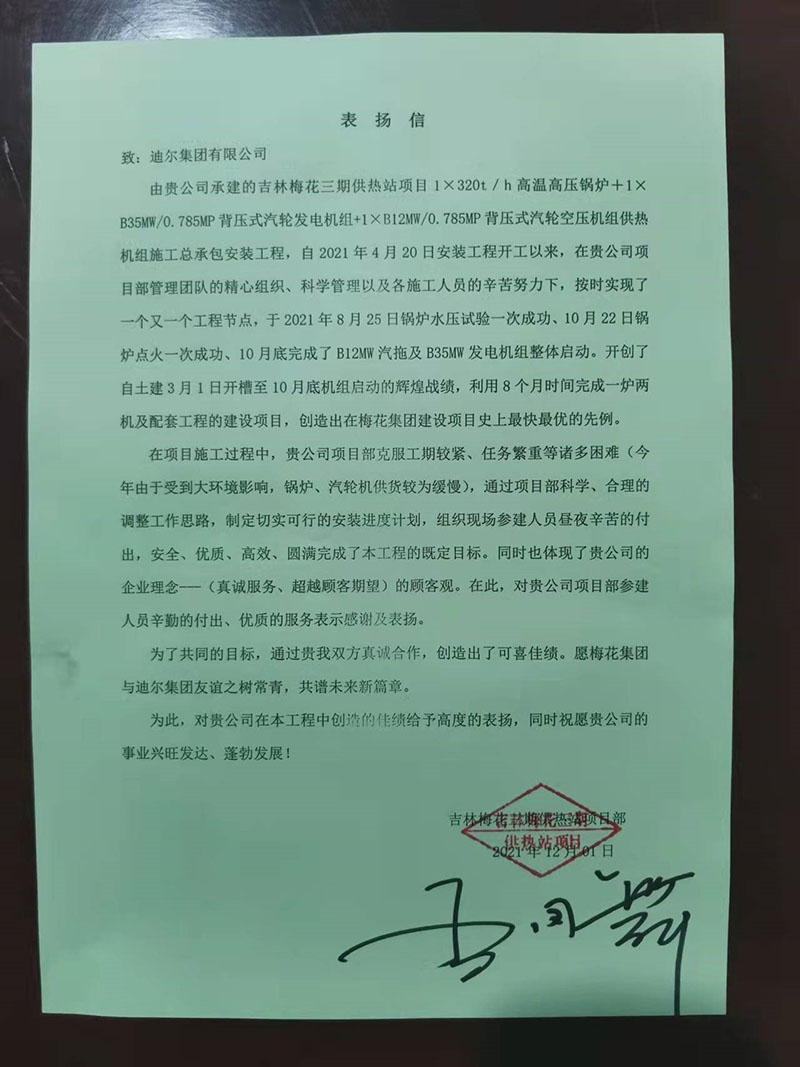 表 扬 信
致：迪尔集团有限公司
由贵公司承建的吉林梅花三期供热站项目 1×320t/h 高温高压锅炉＋1×
B35MW/0.785MP 背压式汽轮发电机组+1×B12MW/0.785MP 背压式汽轮空压机组供热
机组施工总承包安装工程，自 2021 年 4 月 20 日安装工程开工以来，在贵公司项
目部管理团队的精心组织、科学管理以及各施工人员的辛苦努力下，按时实现了
一个又一个工程节点，于 2021 年 8 月 25 日锅炉水压试验一次成功、10 月 22 日锅
炉点火一次成功、10 月底完成了 B12MW 汽拖及 B35MW 发电机组整体启动。开创了
自土建 3 月 1 日开槽至 10 月底机组启动的辉煌战绩，利用 8 个月时间完成一炉两
机及配套工程的建设项目，创造出在梅花集团建设项目史上最快最优的先例。
在项目施工过程中，贵公司项目部克服工期较紧、任务繁重等诸多困难（今
年由于受到大环境影响，锅炉、汽轮机供货较为缓慢），通过项目部科学、合理的
调整工作思路，制定切实可行的安装进度计划，组织现场参建人员昼夜辛苦的付
出，安全、优质、高效、圆满完成了本工程的既定目标。同时也体现了贵公司的
企业理念---（真诚服务、超越顾客期望）的顾客观。在此，对贵公司项目部参建
人员辛勤的付出、优质的服务表示感谢及表扬。
为了共同的目标，通过贵我双方真诚合作，创造出了可喜佳绩。愿梅花集团
与迪尔集团友谊之树常青，共谱未来新篇章。
为此，对贵公司在本工程中创造的佳绩给予高度的表扬，同时祝愿贵公司的
事业兴旺发达、蓬勃发展！
吉林梅花三期供热站项目部
吉林梅花三期
供热站项目
2021 年 12 月 01 日